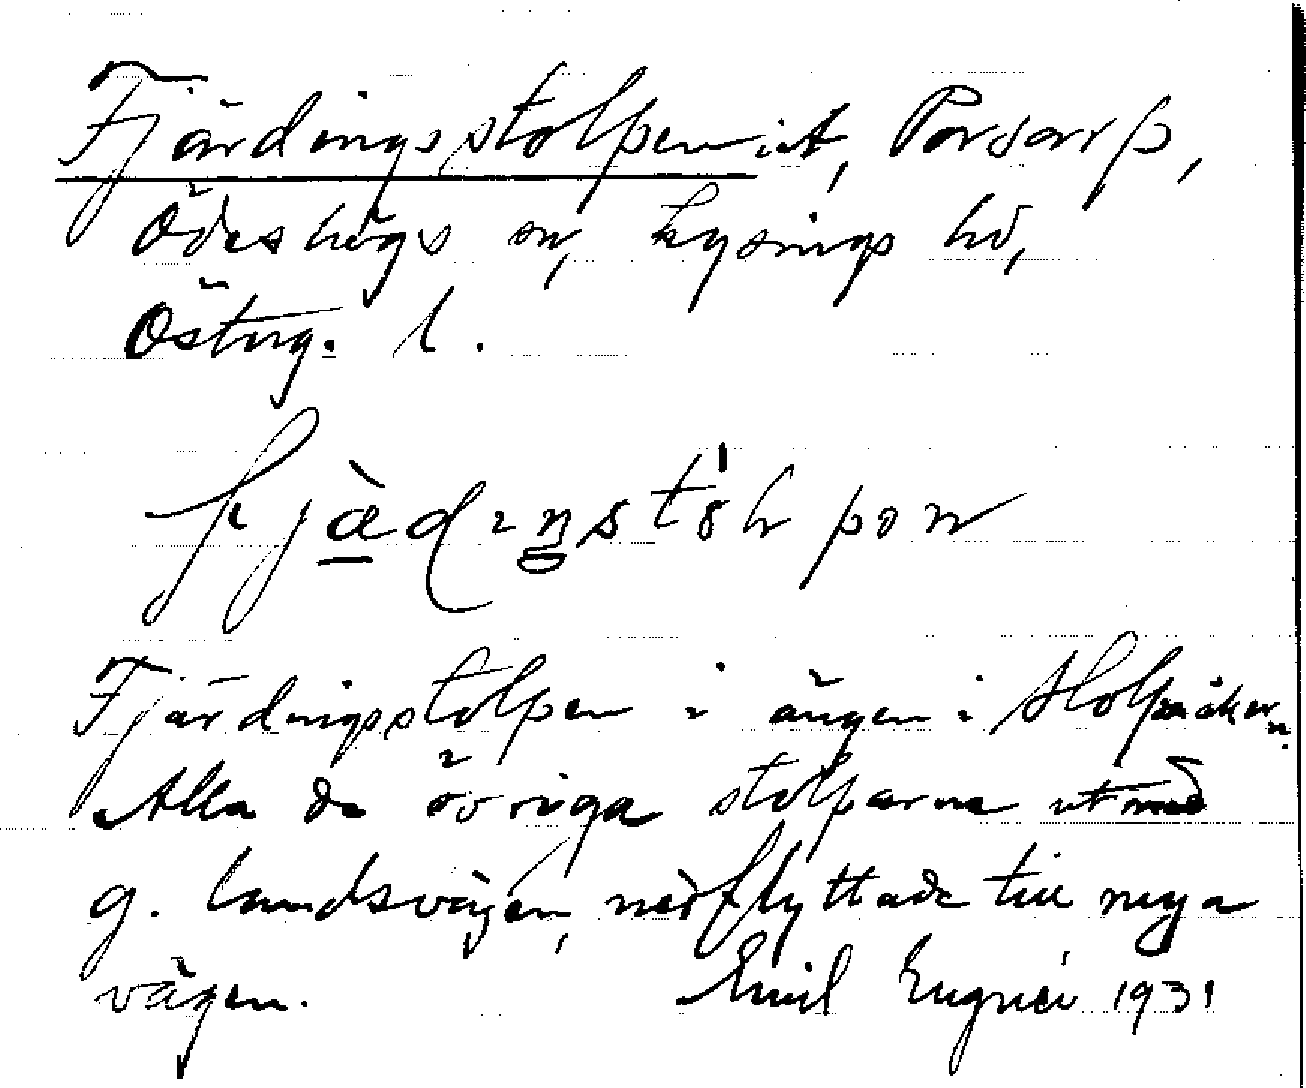 Fjärdingsstolpen, Porsarp,
Ödeshögs sn, Lysings hd,
Österg. l.
Fjärdingsstolpen i ängen i Stolpåkern.
Alla de övriga stolparna utmed
g. landsvägen, nedflyttade till nya
vägen. Emil Lugnéi 1931